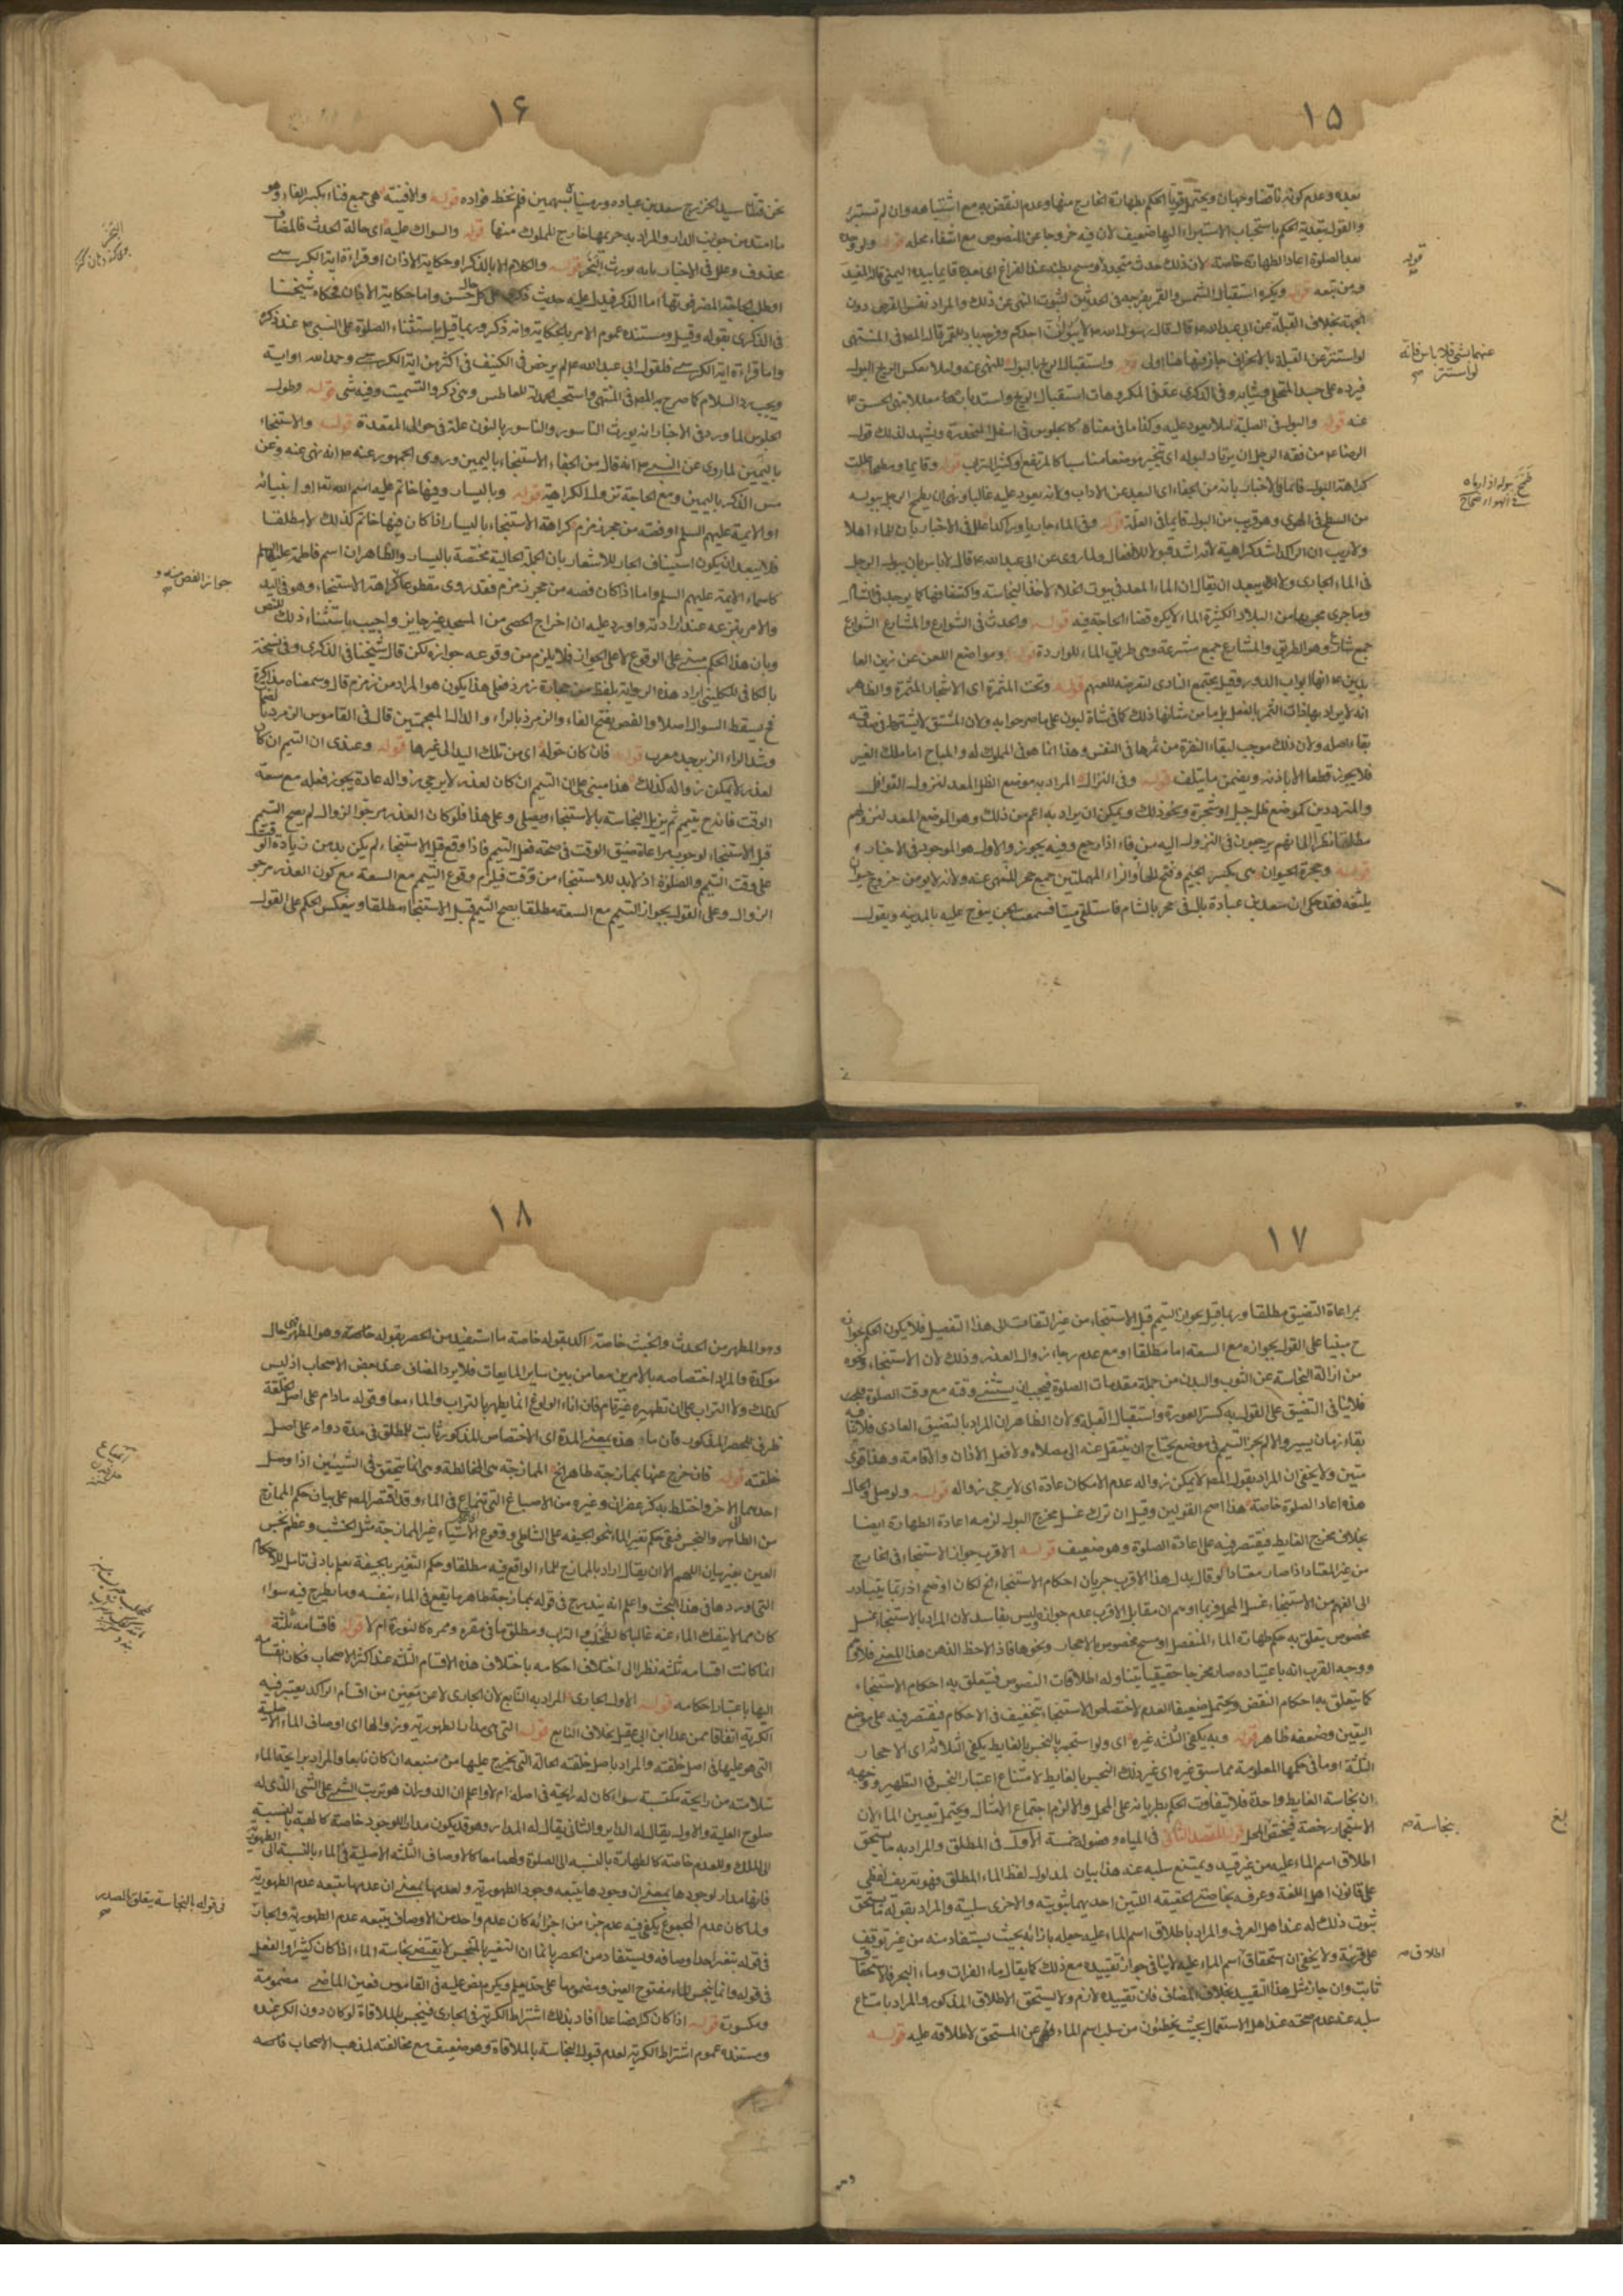 ١٥
بعده وعدم كونه ناقضا وجهان ويحتمل قويا الحكم بطهارة الخارج منها وعدم النقض به مع اشتباهه وان لم تستبرئ
والقول بتعدية الحكم باستحباب الاستبراء اليها ضعيف لان فيه خروجا عن النصوص مع انتفاء محله قوله ولو وجده
بعد الصلوة اعاد الطهارة خاصة لان ذلك حدث متجدد ومسح بطنه عند الفراغ اى
قوله ويكره استقبال الشمس والقمر بفرجه فى الحدثين لثبوت النهى عن ذلك والمراد نفس القرص دون
الجهة بخلاف القبلة عن ابى عبد الله قال قال رسول الله لا يبولن احدكم وفرجه باد للقمر قال المصـ فى المنتهى
لو استتر عن القبلة بالانحراف جاز فهنا اولى قوله واستقبال الريح بالبول للنهى عنه ولئلا يعكس الريح البول
فيرده على جسد المتخلى وثيابه وفى الذكرى عد فى المكروهات استقبال الريح واستدبارها
عنه قوله والبول فى الصلبة لئلا يعود عليه وكذا ما فى معناه كالجلوس فى اسفل المنحدرة ويشهد لذلك قول
الرضا من فقه الرجل ان يرتاد لبوله اى يتخير موضعا مناسبا كالمرتفع او كثير التراب قوله وقايما ومطمحا عللت
كراهة البول قائما فى الاخبار بانه من الجفاء اى البعد عن الاداب ولانه يعود عليه غالبا ونهى ان يطمح الرجل ببوله
من السطح فى الهوى وهو قريب من البول قايما فى العلة قوله وفى الماء جاريا وراكدا علل فى الاخبار بان للماء اهلا
ولا ريب ان الراكد اشد كراهية لانه اشد قبولا للانفعال ولما روى عن ابى عبد الله قال لا باس بان يبول الرجل
فى الماء الجارى ولا يبعد ان يقال ان الماء المعد فى بيوت الخلاء لاخذ النجاسة واكتنافها كما يوجد فى الشام
وما جرى مجريها من البلاد الكثيرة الماء لا يكره قضاء الحاجة فيه قوله والحدث فى الشوارع والمشارع الشوارع
جمع شارع وهو الطريق والمشارع جمع مشرعة وهى طريق الماء للواردة قوله ومواضع اللعن عن زين العا
بدين انها ابواب الدور وقيل مجتمع النادى لتعرضه للعنهم قوله وتحت المثمرة اى الاشجار المثمرة والظاهر
انه لا يراد بها ذات الثمر بالفعل بل ما من شانها ذلك كما فى شاة لبون على ما صرحوا به ولان المشتق لا يشترط فى صدقه
بقاء اصله ولان ذلك موجب لبقاء النفرة من ثمرها فى النفس وهذا انما هو فى المملوك له والمباح اما ملك الغير
فلا يجوز قطعا الا باذنه ويضمن ما يتلف قوله وفى النزال المراد به موضع الظل المعد لنزول القوافل
والمترددين كموضع ظل جبل او شجرة ونحو ذلك ويمكن ان يراد به اعم من ذلك وهو الموضع المعد لنزولهم
مطلقا نظرا الى انهم يرجعون فى النزول اليه من فاء اذا رجع وفيه تجوز والاول هو الموجود فى الاخبار
قوله وحجرة الحيوان هى بكسر الجيم وفتح الحاء والراء المهملتين جمع جحر للنهى عنه ولانه لا يؤمن خروج حيوان
يلسعه فقد حكى ان سعد بن عبادة بال فى جحر بالشام فاستلقى ميتا فسمعت الجن ينوح عليه بالمدينة ويقول
قوله
عنهما بشئ فلا باس فانه
لو استتر
طمح ببوله اذا رماه
فى الهواء صحاح
١٦
نحن قتلنا سيد الخزرج سعد بن عباده ورميناه بسهمين فلم نخط فؤاده قوله والافنية هى جمع فناء بكسر الفاء وهو
ما امتد من جوانب الدار والمراد به حريمها خارج المملوك منها قوله والسواك عليه اى حالة الحدث فالمضاف
محذوف وعلل فى الاخبار بانه يورث البخر قوله والكلام الا بالذكر او حكاية الاذان او قراءة اية الكرسى
او طلب الحاجة المضر فوتها اما الذكر فيدل عليه حديث على كل حال حسن واما حكاية الاذان فحكاه شيخنا
فى الذكرى بقوله وقيل ومستنده عموم الامر بالحكاية وانه ذكر وربما قيل باستثناء الصلوة على النبى عند ذكره
واما قراءة اية الكرسى فلقول ابى عبد الله لم يرخص فى الكنيف فى اكثر من اية الكرسى وحمد الله او اية
ويجب رد السلام كما صرح به المصـ فى المنتهى واستحب الحمدلة للعاطس وفى ذكره التسميت وفيه شئ قوله وطول
الجلوس لما ورد فى الاخبار انه يورث الناسور والناسور بالنون علة فى حوالى المقعدة قوله والاستنجاء
باليمين لما روى عن النبى انه قال من الجفاء الاستنجاء باليمين وروى الجمهور عنه انه نهى عنه وعن
مس الذكر باليمين ومع الحاجة تزول الكراهة قوله وباليسار وفيها خاتم عليه اسم الله تعالى او انبيائه
او الائمة عليهم السلم او فصه من حجر زمزم كراهة الاستنجاء باليسار اذا كان فيها خاتم كذلك لا مطلقا
فلا يبعد ان يكون استيناف الجار للاشعار بان الجملة الحالية مختصة باليسار والظاهر ان اسم فاطمة عليها السلم
كاسماء الائمة عليهم السلم واما اذا كان فصه من حجر زمزم فقد روى مقطوعا كراهة الاستنجاء وهو فى اليد
والامر بنزعه عند ارادته واورد عليه ان اخراج الحصى من المسجد غير جايز واجيب باستثناء ذلك للنص
وبان هذا الحكم مبنى على الوقوع لا على الجواز فلا يلزم من وقوعه جوازه لكن قال شيخنا فى الذكرى وفى نسخة
بالكافى للكلينى ايراد هذه الرواية بلفظ من حجارة زمرذ فعلى هذا يكون هو المراد من زمزم قال وسمعناه مذاكرة
فح يسقط السؤال اصلا والفص بفتح الفاء والزمرذ بالراء والذال المعجمتين قال فى القاموس الزمرذ
وشد الراء الزبرجد معرب قوله فان كان حوله اى من تلك اليد الى غيرها قوله وعندى ان التيمم ان كان
لعذر لا يمكن زواله كذلك هذا مبنى على ان التيمم ان كان لعذر لا يرجى زواله عادة يجوز فعله مع سعة
الوقت فاندرج يتيمم ثم يزيل النجاسة بالاستنجاء ويصلى وعلى هذا فلو كان العذر مرجو الزوال لم يصح التيمم
قبل الاستنجاء لوجوب مراعاة ضيق الوقت فى صحة فعل التيمم فاذا وقع قبل الاستنجاء لم يكن بد من زيادة الوقت
على وقت التيمم والصلوة اذ لا بد للاستنجاء من وقت فيلزم وقوع التيمم مع السعة مع كون العذر مرجو
الزوال وعلى القول بجواز التيمم مع السعة مطلقا يصح التيمم قبل الاستنجاء مطلقا وينعكس الحكم على القول
البخر
جواز الفص منه و
١٧
بمراعاة التضيق مطلقا وربما قيل بجواز التيمم قبل الاستنجاء من غير التفات الى هذا التفصيل فلا يكون الحكم بجوازه
ح مبنيا على القول بجوازه مع السعة اما مطلقا او مع عدم رجاء زوال العذر وذلك لان الاستنجاء ونحوه
من ازالة النجاسة عن الثوب والبدن من جملة مقدمات الصلوة فيجب ان يستثنى وقته مع وقت الصلوة
فلا ينافى التضيق على القول به كستر العورة واستقبال القبلة ولان الظاهر ان المراد بالتضيق العادى فلا ينافيه
بقاء زمان يسير والا لم يجز التيمم فى موضع يحتاج ان ينتقل عنه الى مصلاه ولا فعل الاذان والاقامة وهذا قوى
متين ولا يخفى ان المراد بقول المصـ لا يمكن زواله عدم الامكان عادة اى لا يرجى زواله قوله ولو صلى والحال
هذه اعاد الصلوة خاصة هذا اصح القولين وقيل ان ترك غسل مخرج البول لزمه اعادة الطهارة ايضا
بخلاف مخرج الغايط فيقتصر فيه على اعادة الصلوة وهو ضعيف قوله الاقرب جواز الاستنجاء فى الخارج
من غير المعتاد اذا صار معتادا لو قال بدل هذا الاقرب جريان احكام الاستنجاء الخ لكان اوضح اذ ربما يتبادر
الى الفهم من الاستنجاء غسل المحل فربما اوهم ان مقابل الاقرب عدم جوازه وليس بفاسد لان المراد بالاستنجاء غسل
مخصوص يتعلق به حكم طهارة الماء المنفصل او مسح مخصوص بالاحجار ونحوها فاذا لاحظ الذهن هذا المعنى فلا
ووجه القرب انه باعتياده صار مخرجا حقيقيا يتناوله اطلاقات النصوص فيتعلق به احكام الاستنجاء
كما يتعلق به احكام النقض ويحتمل ضعيفا العدم لاختصاص الاستنجاء بتخفيف فى الاحكام فيقتصر فيه على موضع
اليقين وضعفه ظاهر قوله وبه يكفى الثلثة غيره اى ولو استجمر بالنجس بالغايط يكفى الثلاثة اى الاحجار
الثلثة او ما فى حكمها المعلومة مما سبق غيره اى غير ذلك النجس بالغايط لامتناع اعتبار النجس فى التطهير ووجهه
ان نجاسة الغايط واحدة فلا يتفاوت الحكم بطريانه على المحل والا لزم اجتماع الامثال ويحتمل تعيين الماء لان
الاستجمار رخصة فيختص المحل قوله المقصد الثانى فى المياه وفصوله خمسة الاول فى المطلق والمراد به ما يستحق
اطلاق اسم الماء عليه من غير قيد ويمتنع سلبه عنه هذا بيان لمدلول لفظ الماء المطلق فهو تعريف لفظى
على قانون اهل اللغة وعرفه بخاصتى الحقيقه اللتين احديهما ثبوتيه والاخرى سلبية والمراد بقوله ما يستحق
ثبوت ذلك له عند اهل العرف والمراد باطلاق اسم الماء عليه جعله بازائه بحيث يستفاد منه من غير توقف
على قرينة ولا يخفى ان استحقاق اسم الماء عليه لا ينافى جواز تقييده مع ذلك كما يقال ماء الفرات وماء البحر فالاستحقاق
ثابت وان جاز مثل هذا التقييد بخلاف المضاف فان تقييده لازم ولا يستحق الاطلاق المذكور والمراد بامتناع
سلبه عنه عدم صحته عند اهل الاستعمال بحيث يخطئون من سلب اسم الماء عن المستحق لاطلاقه عليه قوله
بنجاسة
بلغ
اطلاق
١٨
وهو المطهر من الحدث والخبث خاصة اكد بقوله خاصة ما استفيد من الحصر بقوله وهو المطهر فهى حال
موكدة والمراد اختصاصه بالامرين معا من بين ساير المايعات فلا يرد المضاف عند بعض الاصحاب اذ ليس
كذلك ولا التراب على ان تطهيره غير تام فان اناء الولوغ انما يطهر بالتراب والماء معا وقوله مادام على اصل الخلقة
ظرف للحصر المذكور فان ما هذه بمعنى المدة اى الاختصاص المذكور ثابت للمطلق فى مدة دوامه على اصل
خلقته قوله فان خرج عنها بممازجة طاهر الخ الممازجة هى المخالطة وهى انما يتحقق فى الشيئين اذا وصل
احدهما الاخر واختلط به كزعفران وغيره من الاصباغ التى تنماع فى الماء وقد اقتصر المصـ على بيان حكم الممازج
من الطاهر والنجس فبقى حكم تغير الماء بنحو الجيفه على الشاطئ ووقوع الاشياء غير الممازجة مثل الخشب وعظم نجس
العين بغير بيان اللهم الا ان يقال اراد بالممازج للماء الواقع فيه مطلقا وحكم التغير بالجيفة يعلم بادنى تامل للاحكام
التى اوردها فى هذا البحث واعلم انه يندرج فى قوله بممازجة طاهر ما يقع فى الماء بنفسه وما يطرح فيه سواء
كان مما لا ينفك الماء عنه غالبا كالطحلب والتراب ومطلق ما فى مقره وممره كالنورة ام لا قوله فاقسامه ثلثة
انما كانت اقسامه ثلثه نظرا الى اختلاف احكامه باختلاف هذه الاقسام الثلثه عند اكثر الاصحاب فكان انقسامه
اليها باعتبار احكامه قوله الاول الجارى المراد به النابع لان الجارى لا عن نبع من اقسام الراكد يعتبر فيه
الكرية اتفاقا ممن عدا ابن ابى عقيل بخلاف النابع قوله التى هى مدار الطهورية وزوالها اى اوصاف الماء الاصلية
التى هو عليها فى اصل خلقته والمراد باصل خلقته الحالة التى يخرج عليها من منبعه ان كان نابعا والمراد برايحة الماء
سلامته من رايحة مكتسبة سواء كان له رايحة فى اصله ام لا واعلم ان الدوران هو ترتب الشئ على الشئ الذى له
صلوح العلية والاول يقال له الداير والثانى يقال له المدار وهو قد يكون مدارا للوجود خاصة كالهبة بالنسبة
الى الملك وللعدم خاصة كالطهارة بالنسبه الى الصلوة ولهما معا كالاوصاف الثلثه الاصلية فى الماء بالنسبة الى الطهورية
فانها مدار لوجودها بمعنى ان وجودها يتبعه وجود الطهورية ولعدمها بمعنى ان عدمها يتبعه عدم الطهورية
ولما كان عدم المجموع يكفى فيه عدم جزء من اجزائه كان عدم واحد من الاوصاف يتبعه عدم الطهورية والجار
فى قوله بتغير احد اوصافه ويستفاد من الحصر بانما ان التغير بالمتنجس لا يقتضى نجاسة الماء اذا كان كثيرا والفعل
فى قوله وانما ينجس الماء مفتوح العين ومضمومها على حد يعلم ويكرم نص عليه فى القاموس فعين الماضى مضمومة
ومكسورة قوله اذا كان كرا فصاعدا افاد بذلك اشتراط الكرية فى الجارى فينجس بالملاقاة لو كان دون الكر عنده
ومستنده عموم اشتراط الكرية لعدم قبول النجاسة بالملاقاة وهو ضعيف مع مخالفته لمذهب الاصحاب فانه
فى قوله بالنجاسة يتعلق بالمصدر